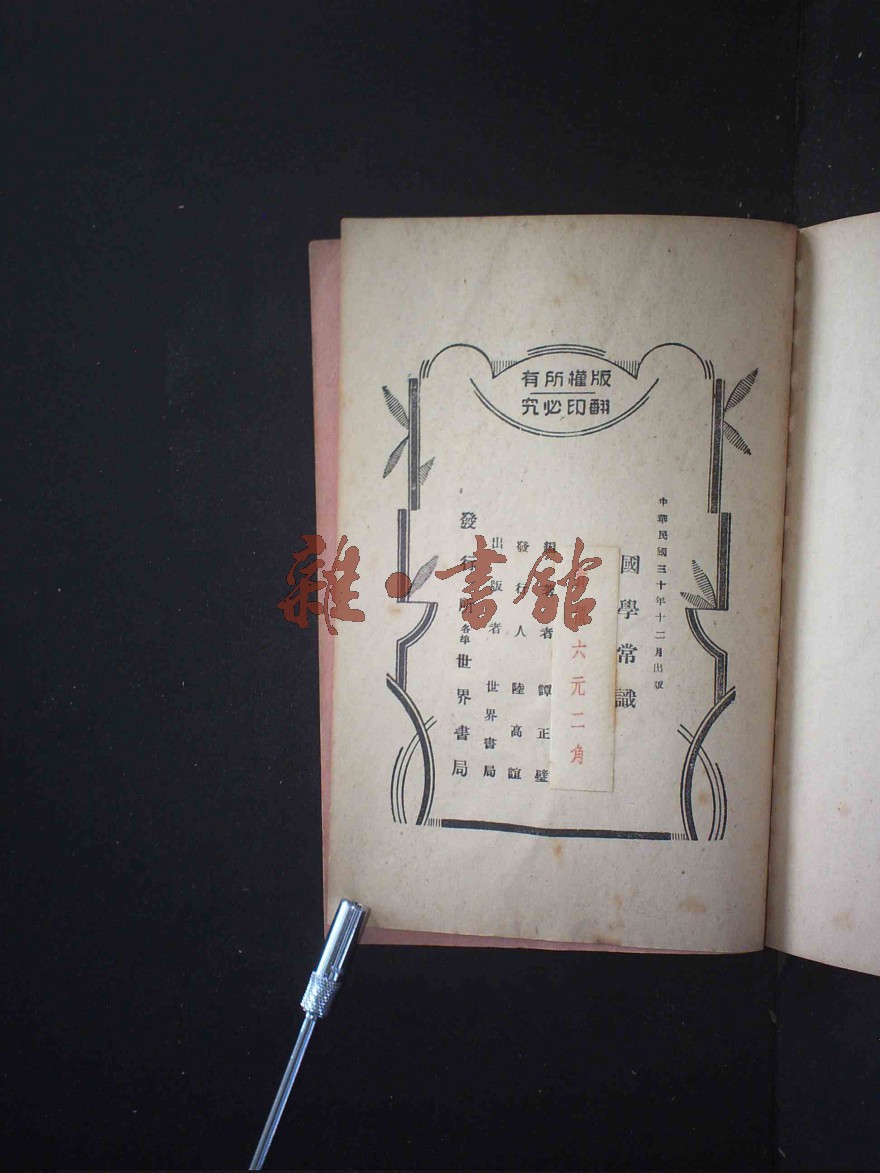 版權所有
翻印必究
中華民國三十年十二月出版
國學常識
六元二角
編著者 譚正璧
發行人 陸高誼
出版者 世界書局
發行所 各埠 世界書局
雜·書館